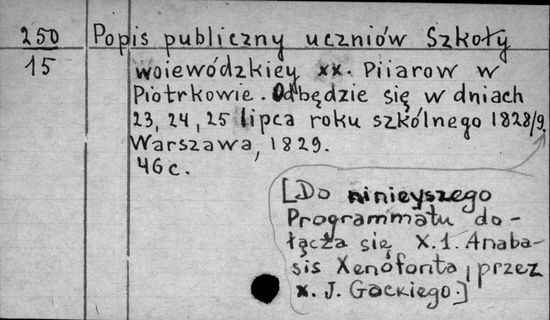 250
15
Popis publiczny uczniów Szkoły
woiewódzkiey xx. Piiarow w
Piotrkowie. Odbędzie się w dniach
23, 24, 25 lipca roku szkólnego 1828/9.
Warszawa, 1829.
46c.
[Do ninieyszego
Programmatu do-
łącza się X.1. Anaba-
sis Xenofonta, przez
x. J. Gackiego.]